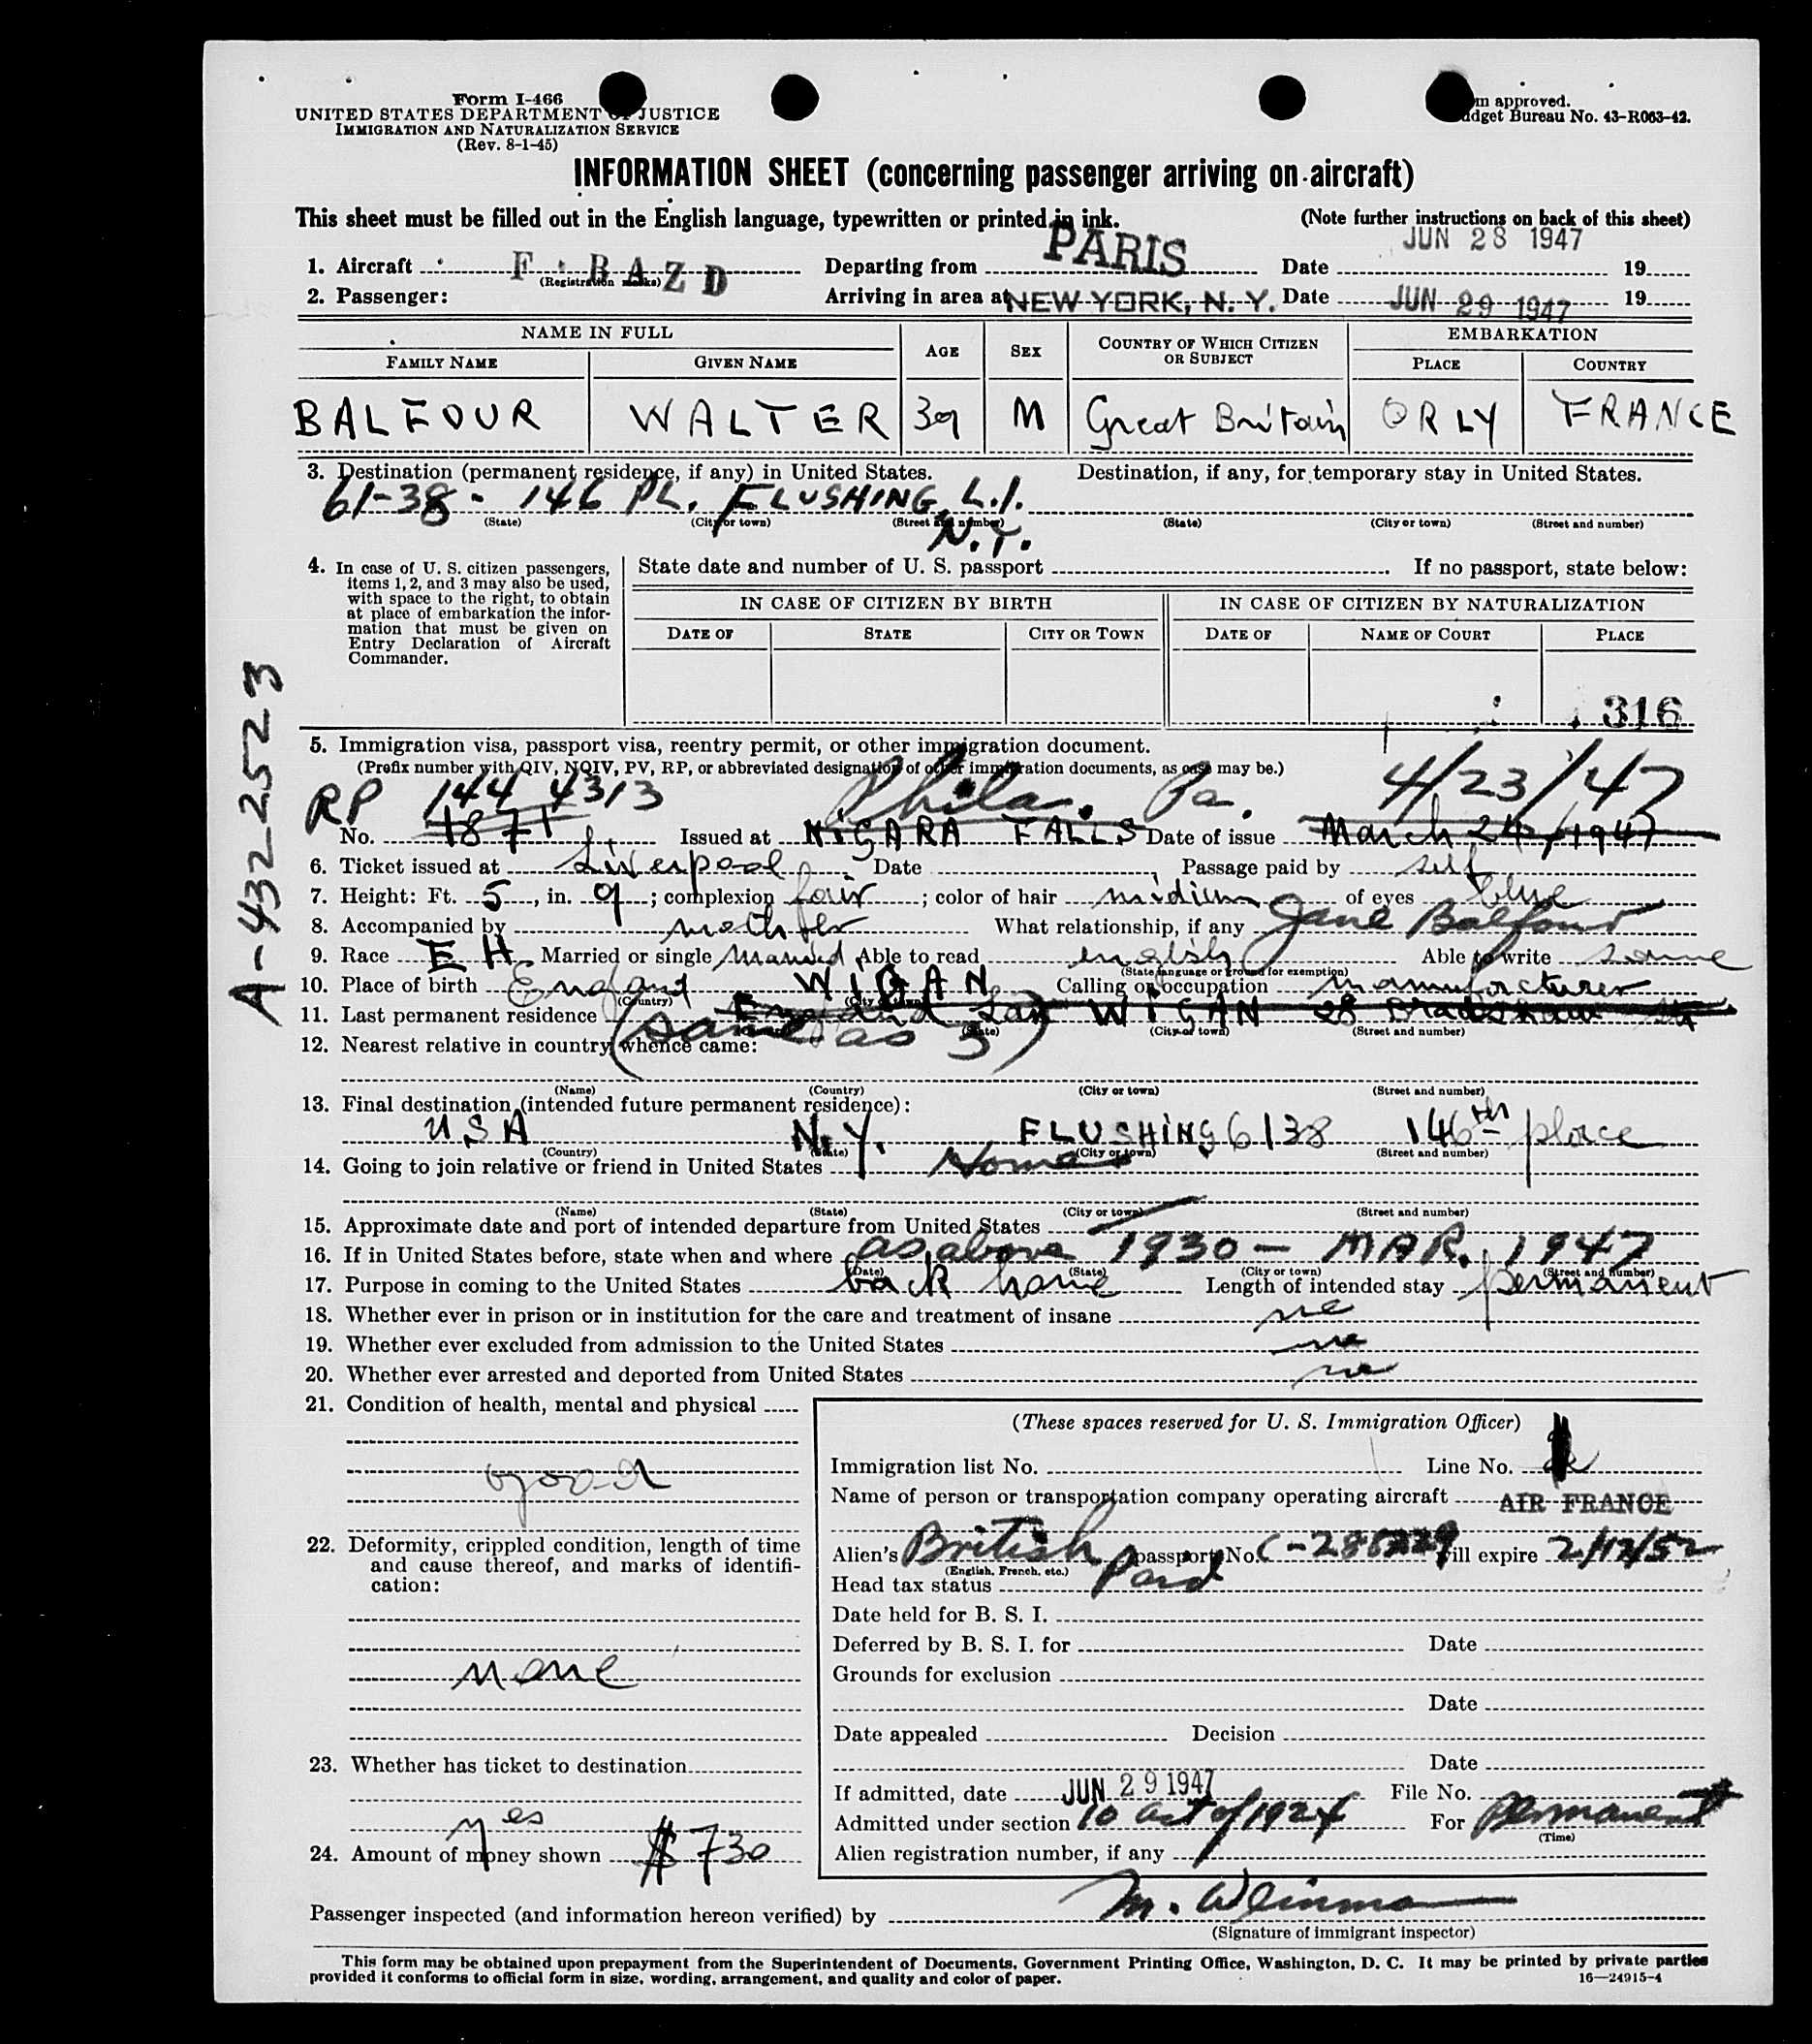 Form I-466
UNITED STATES DEPARTMENT OF JUSTICE
IMMIGRATION AND NATURALIZATION SERVICE
(Rev. 8-1-45)
m approved.
dget Bureau No. 43-R063-42.
INFORMATION SHEET (concerning passenger arriving on aircraft)
This sheet must be filled out in the English language, typewritten or printed in ink. (Note further instructions on back of this sheet)
1. Aircraft F. BAZD Departing from PARIS Date JUN 28 1947 19
(Registration marks)
2. Passenger: Arriving in area at NEW YORK, N. Y. Date JUN 29 1947 19
NAME IN FULL AGE SEX COUNTRY OF WHICH CITIZEN OR SUBJECT EMBARKATION
FAMILY NAME GIVEN NAME PLACE COUNTRY
BALFOUR WALTER 39 M Great Britain ORLY FRANCE
3. Destination (permanent residence, if any) in United States. Destination, if any, for temporary stay in United States.
61-38 - 146 PL. FLUSHING, L.I.
(State) (City or town) (Street and number) (State) (City or town) (Street and number)
N.Y.
4. In case of U. S. citizen passengers, items 1, 2, and 3 may also be used, with space to the right, to obtain at place of embarkation the information that must be given on Entry Declaration of Aircraft Commander.
State date and number of U. S. passport If no passport, state below:
IN CASE OF CITIZEN BY BIRTH IN CASE OF CITIZEN BY NATURALIZATION
DATE OF STATE CITY OR TOWN DATE OF NAME OF COURT PLACE
316
A-4322523
5. Immigration visa, passport visa, reentry permit, or other immigration document.
(Prefix number with QIV, NQIV, PV, RP, or abbreviated designation of other immigration documents, as case may be.)
RP 144 4313 Phila. Pa. 4/23/47
No. 1871 Issued at NIGARA FALLS Date of issue March 24, 1947
6. Ticket issued at Liverpool Date Passage paid by self
7. Height: Ft. 5, in. 9; complexion fair; color of hair midium of eyes blue
8. Accompanied by mother What relationship, if any Jane Balfour
9. Race EH Married or single married Able to read english Able to write same
(State language or ground for exemption)
10. Place of birth England WIGAN Calling or occupation manufacturer
(Country) (City or town)
11. Last permanent residence England Lan WIGAN 28 Bradshaw St
(same as 3) (State) (City or town) (Street and number)
12. Nearest relative in country whence came:
(Name) (Country) (City or town) (Street and number)
13. Final destination (intended future permanent residence):
USA N.Y. FLUSHING 6138 146th place
(Country) (State) (City or town) (Street and number)
14. Going to join relative or friend in United States Home
(Name) (State) (City or town) (Street and number)
15. Approximate date and port of intended departure from United States
16. If in United States before, state when and where as above 1930 - MAR. 1947
(Date) (State) (City or town) (Street and number)
17. Purpose in coming to the United States back home Length of intended stay permanent
18. Whether ever in prison or in institution for the care and treatment of insane no
19. Whether ever excluded from admission to the United States no
20. Whether ever arrested and deported from United States no
21. Condition of health, mental and physical
good
22. Deformity, crippled condition, length of time and cause thereof, and marks of identification:
none
23. Whether has ticket to destination
yes
24. Amount of money shown $730
(These spaces reserved for U. S. Immigration Officer)
Immigration list No. Line No.
Name of person or transportation company operating aircraft AIR FRANCE
Alien's British passport No. will expire 2/12/52
(English, French, etc.)
Head tax status Paid
Date held for B. S. I.
Deferred by B. S. I. for Date
Grounds for exclusion
Date
Date appealed Decision
Date
If admitted, date JUN 29 1947 File No.
Admitted under section 10 act of 1924 For Permanent
(Time)
Alien registration number, if any
Passenger inspected (and information hereon verified) by M. Weinman
(Signature of immigrant inspector)
This form may be obtained upon prepayment from the Superintendent of Documents, Government Printing Office, Washington, D. C. It may be printed by private parties
provided it conforms to official form in size, wording, arrangement, and quality and color of paper. 16—24915-4